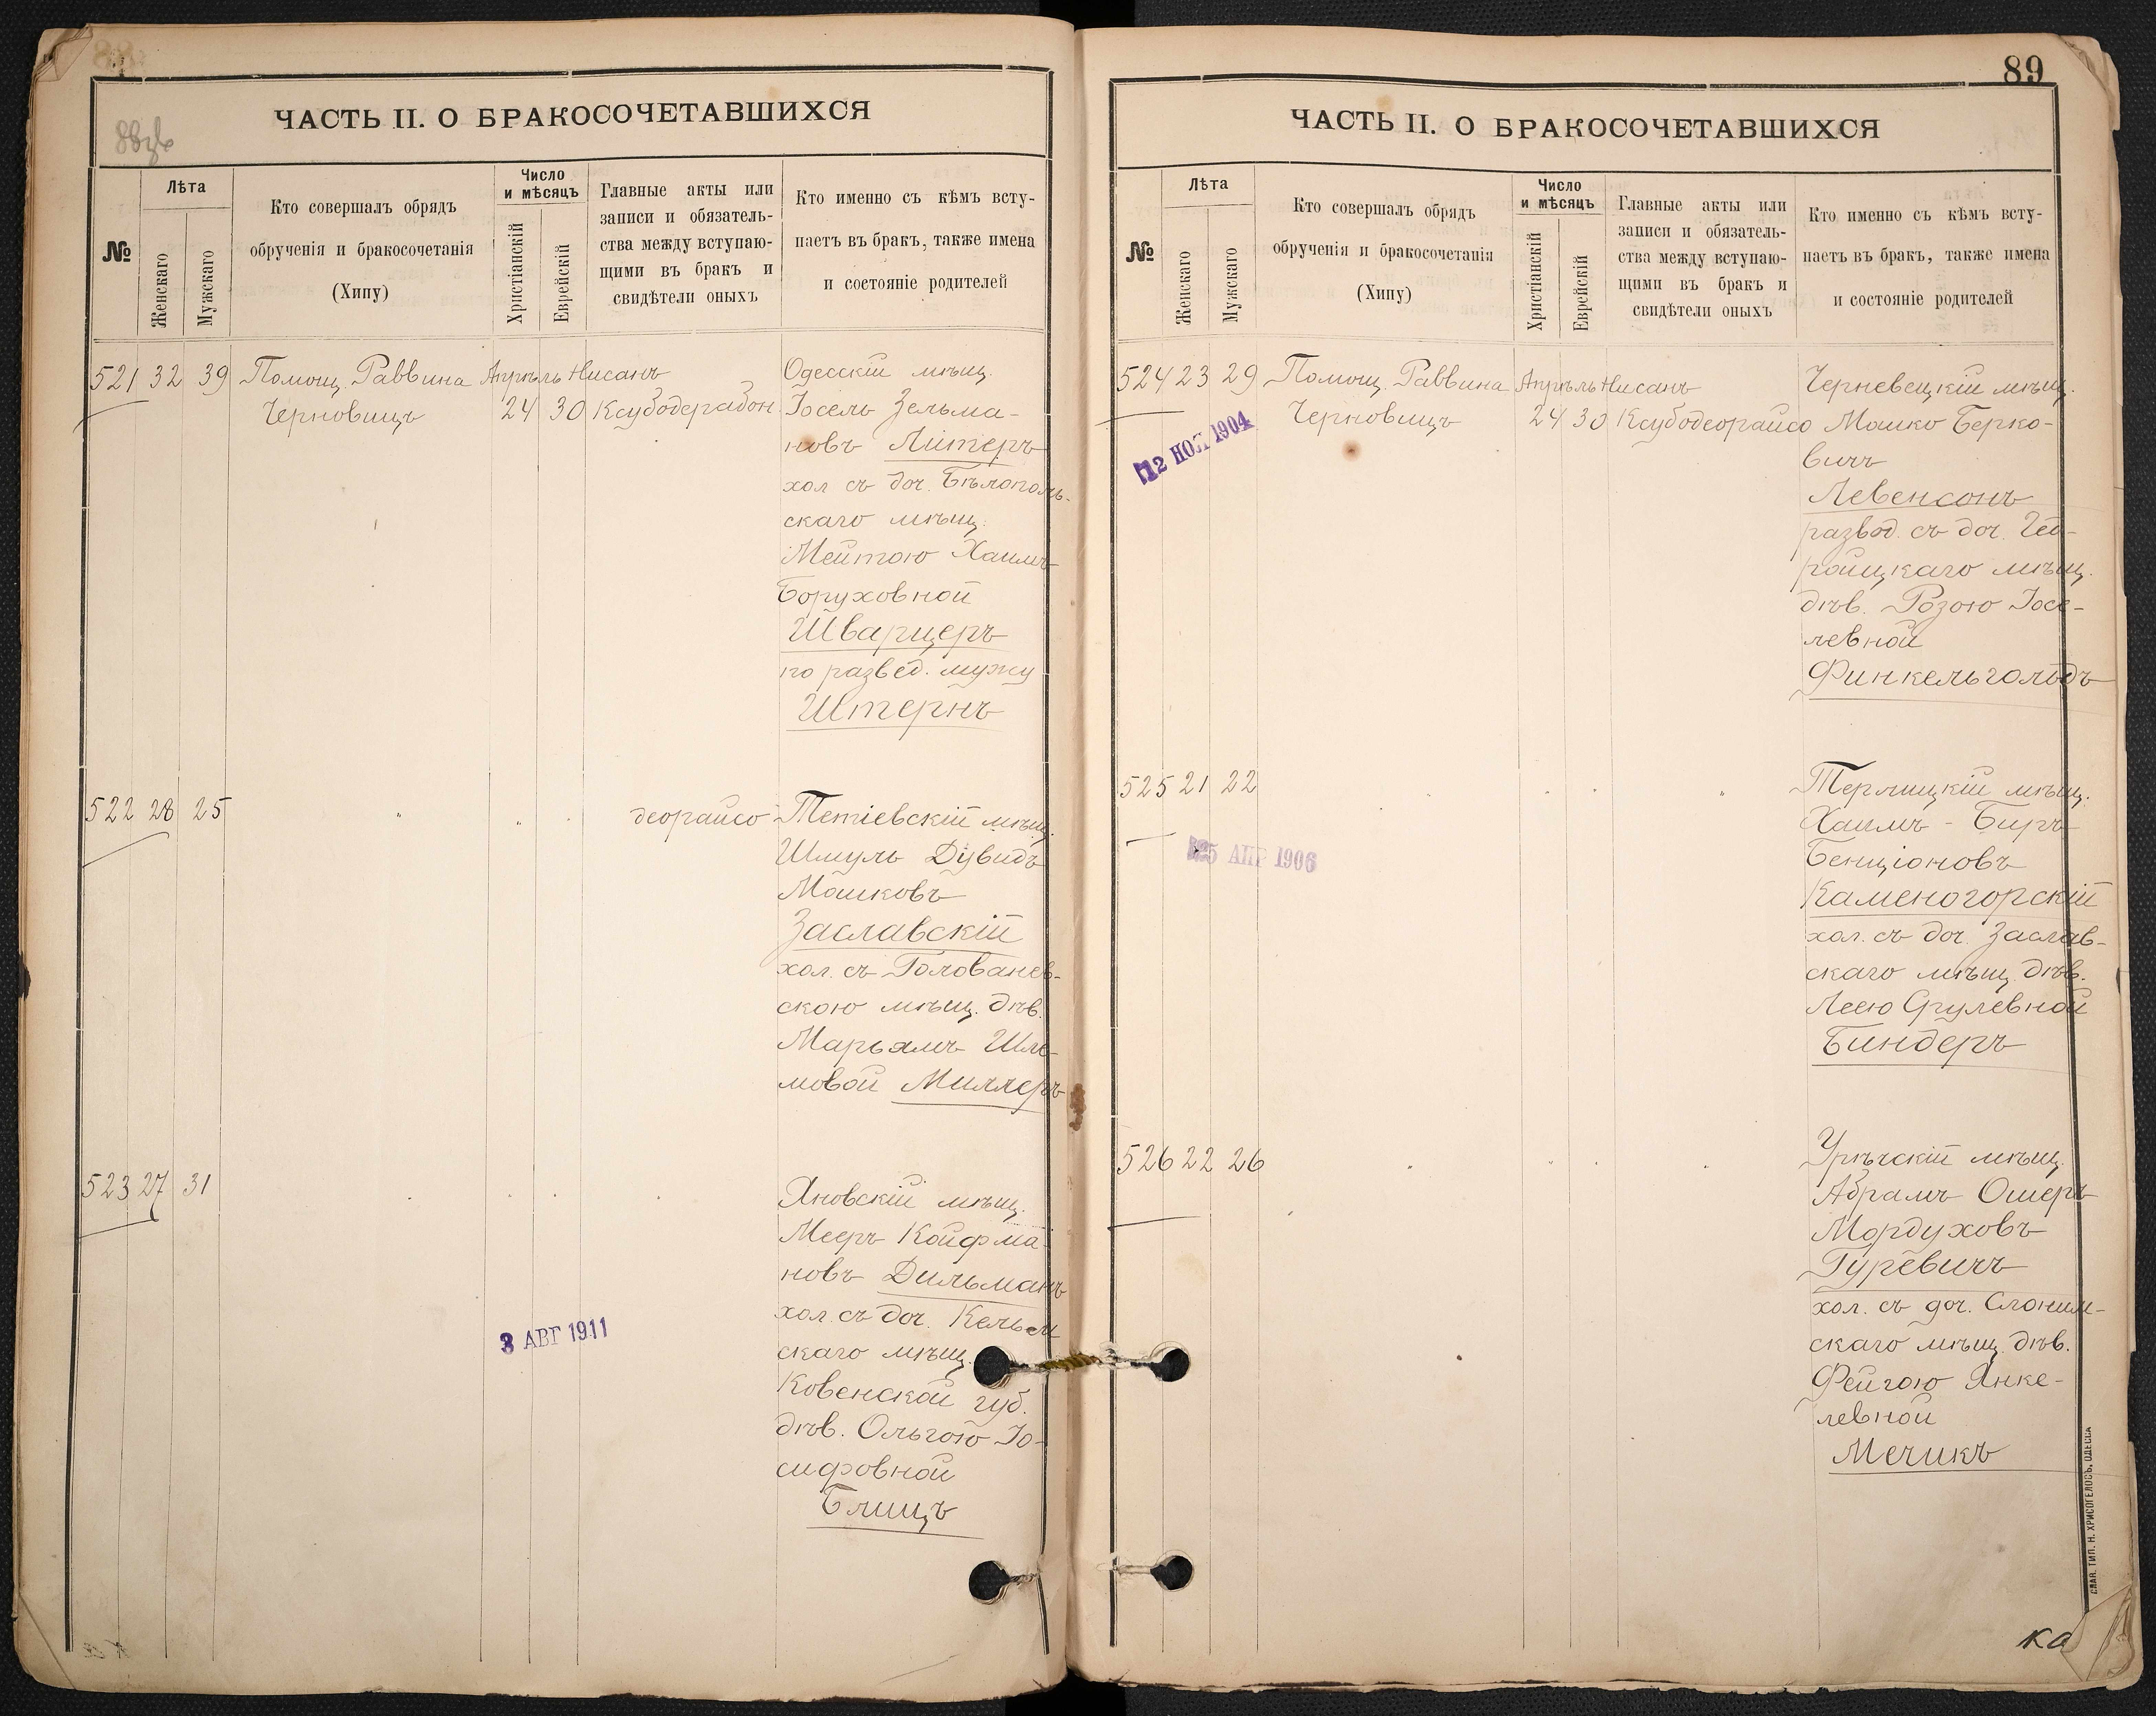 ЧАСТЬ II. О БРАКОСОЧЕТАВШИХСЯ
№
Лѣта
Женскаго
Мужскаго
Кто совершалъ обрядъ
обрученія и бракосочетанія
(Хипу)
Число
и мѣсяцъ
Христіанскій
Еврейскій
Главные акты или
записи и обязатель-
ства между вступаю-
щими въ бракъ и
свидѣтели оныхъ
Кто именно съ кѣмъ всту-
паетъ въ бракъ, также имена
и состояніе родителей
521 32 39 Помощ. Раввина Апрѣль Нисанъ
Черновицъ 24 30 Ксубодерабон.
Одесскій мѣщ.
Іосель Зельма-
новъ Литеръ
хол съ доч. Бѣлополь-
скаго мѣщ.
Мейтою Хаимъ
Боруховной
Шварцеръ
по развед. мужу
Штернъ
522 28 25 " " " деорайсо
Тетіевскій мѣщ.
Шмуль Дувидъ
Мошковъ
Заславскій
хол. съ Голованев-
скою мѣщ. дѣв.
Марьямъ Шле-
мовой Миллеръ
523 27 31
3 АВГ 1911
Яновскій мѣщ.
Мееръ Койфма-
новъ Дильманъ
хол. съ доч. Кельм
скаго мѣщ.
Ковенской губ.
дѣв. Ольгою Іо-
сифовной
Блицъ
89
ЧАСТЬ II. О БРАКОСОЧЕТАВШИХСЯ
№
Лѣта
Женскаго
Мужскаго
Кто совершалъ обрядъ
обрученія и бракосочетанія
(Хипу)
Число
и мѣсяцъ
Христіанскій
Еврейскій
Главные акты или
записи и обязатель-
ства между вступаю-
щими въ бракъ и
свидѣтели оныхъ
Кто именно съ кѣмъ всту-
паетъ въ бракъ, также имена
и состояніе родителей
524 23 29 Помощ. Раввина Апрѣль Нисанъ
Черновицъ 24 30 Ксубодеорайсо
12 НОЯ 1904
Черневецкій мѣщ.
Мошко Берко-
вичъ
Левенсонъ
развод. съ доч. Гей-
ройцкаго мѣщ.
дѣв. Розою Іосе-
левной
Финкельгольдъ
525 21 22
25 АПР 1906
Терлицкій мѣщ.
Хаимъ - Биръ
Бенціоновъ
Каменогорскій
хол. съ доч. Заслав-
скаго мѣщ. дѣв.
Леею Срулевной
Биндеръ
526 22 26
Урѣчскій мѣщ.
Абрамъ Ошеръ
Мордуховъ
Гуревичъ
хол. съ доч. Слоним-
скаго мѣщ. дѣв.
Фейгою Янке-
левной
Мечикъ
СЛАВ. ТИП. Н. ХРИСОГЕЛОСЪ, ОДЕССА